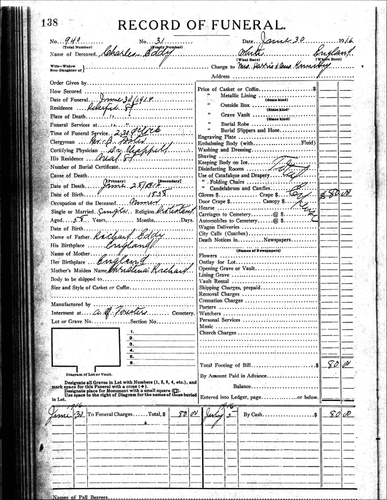 138
RECORD OF FUNERAL.
No. 941 No. 31 Date, June 30 1916
(Total Number) (Yearly Number)
Charles Eddy White England
Wife—Widow
Son-Daughter of Charge to Mrs.
Address
Order Given by
How Secured
Date of Funeral June 30 1916
Place of Death
Funeral Services at
Time of Funeral Service 2:30
Clergyman Rev. B.
Certifying Physician Dr.
His Residence
Number of Burial Certificate
Cause of Death
Date of Death June 28 1916
Date of Birth 1858
Occupation of the Deceased
Single or Married, Single Religion
Aged 58 Years, Months, Days.
Date of Birth
Name of Father Richard Eddy
His Birthplace England
Name of Mother
Her Birthplace England
Mother's Maiden Name Richard
Body to be Shipped to
Size and Style of Casket or Coffin
Manufactured by
Interment at Cemetery.
Lot or Grave No. Section No.
Diagram of Lot or Vault.
Designate all Graves in Lot with Numbers (1, 2, 3, 4, etc.), and
mark space for this Funeral with a cross (+).
Designate place for Monument with a small square (□).
Use space to the right of Diagram for the names of those buried
in Lot.
Price of Casket or Coffin
Metallic Lining
(State kind)
Outside Box
(State kind)
Grave Vault
(State kind)
Burial Robe
Burial Slippers and Hose
Engraving Plate
Embalming Body (with Fluid)
Washing and Dressing
Shaving
Keeping Body on Ice
Disinfecting Rooms
Use of Catafalque and Drapery
" Folding Chairs
Candelabrum and Candles
Gloves $ 80 00
Door Crape $ Canopy $
Hearse
Carriages to Cemetery @ $
Automobiles to Cemetery @ $
Wagon Deliveries
City Calls (Coaches)
Death Notices in Newspapers
(Names of Newspapers)
Flowers
Outlay for Lot
Opening Grave or Vault
Lining Grave
Vault Rental
Shipping Charges, prepaid
Removal Charges
Cremation Charges
Porters
Watchers
Personal Services
Music
Church Charges
Total Footing of Bill 80 00
By Amount Paid in Advance
Balance
Entered into Ledger, page or below.
1916 1916
June 30 To Funeral Charges 80 00 July 5 By Cash $ 80 00
Names of Pall Bearers